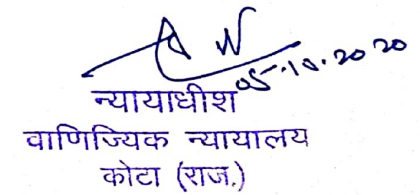 05-10.2020
न्यायाधीश
वाणिज्यिक न्यायालय
कोटा (राज.)